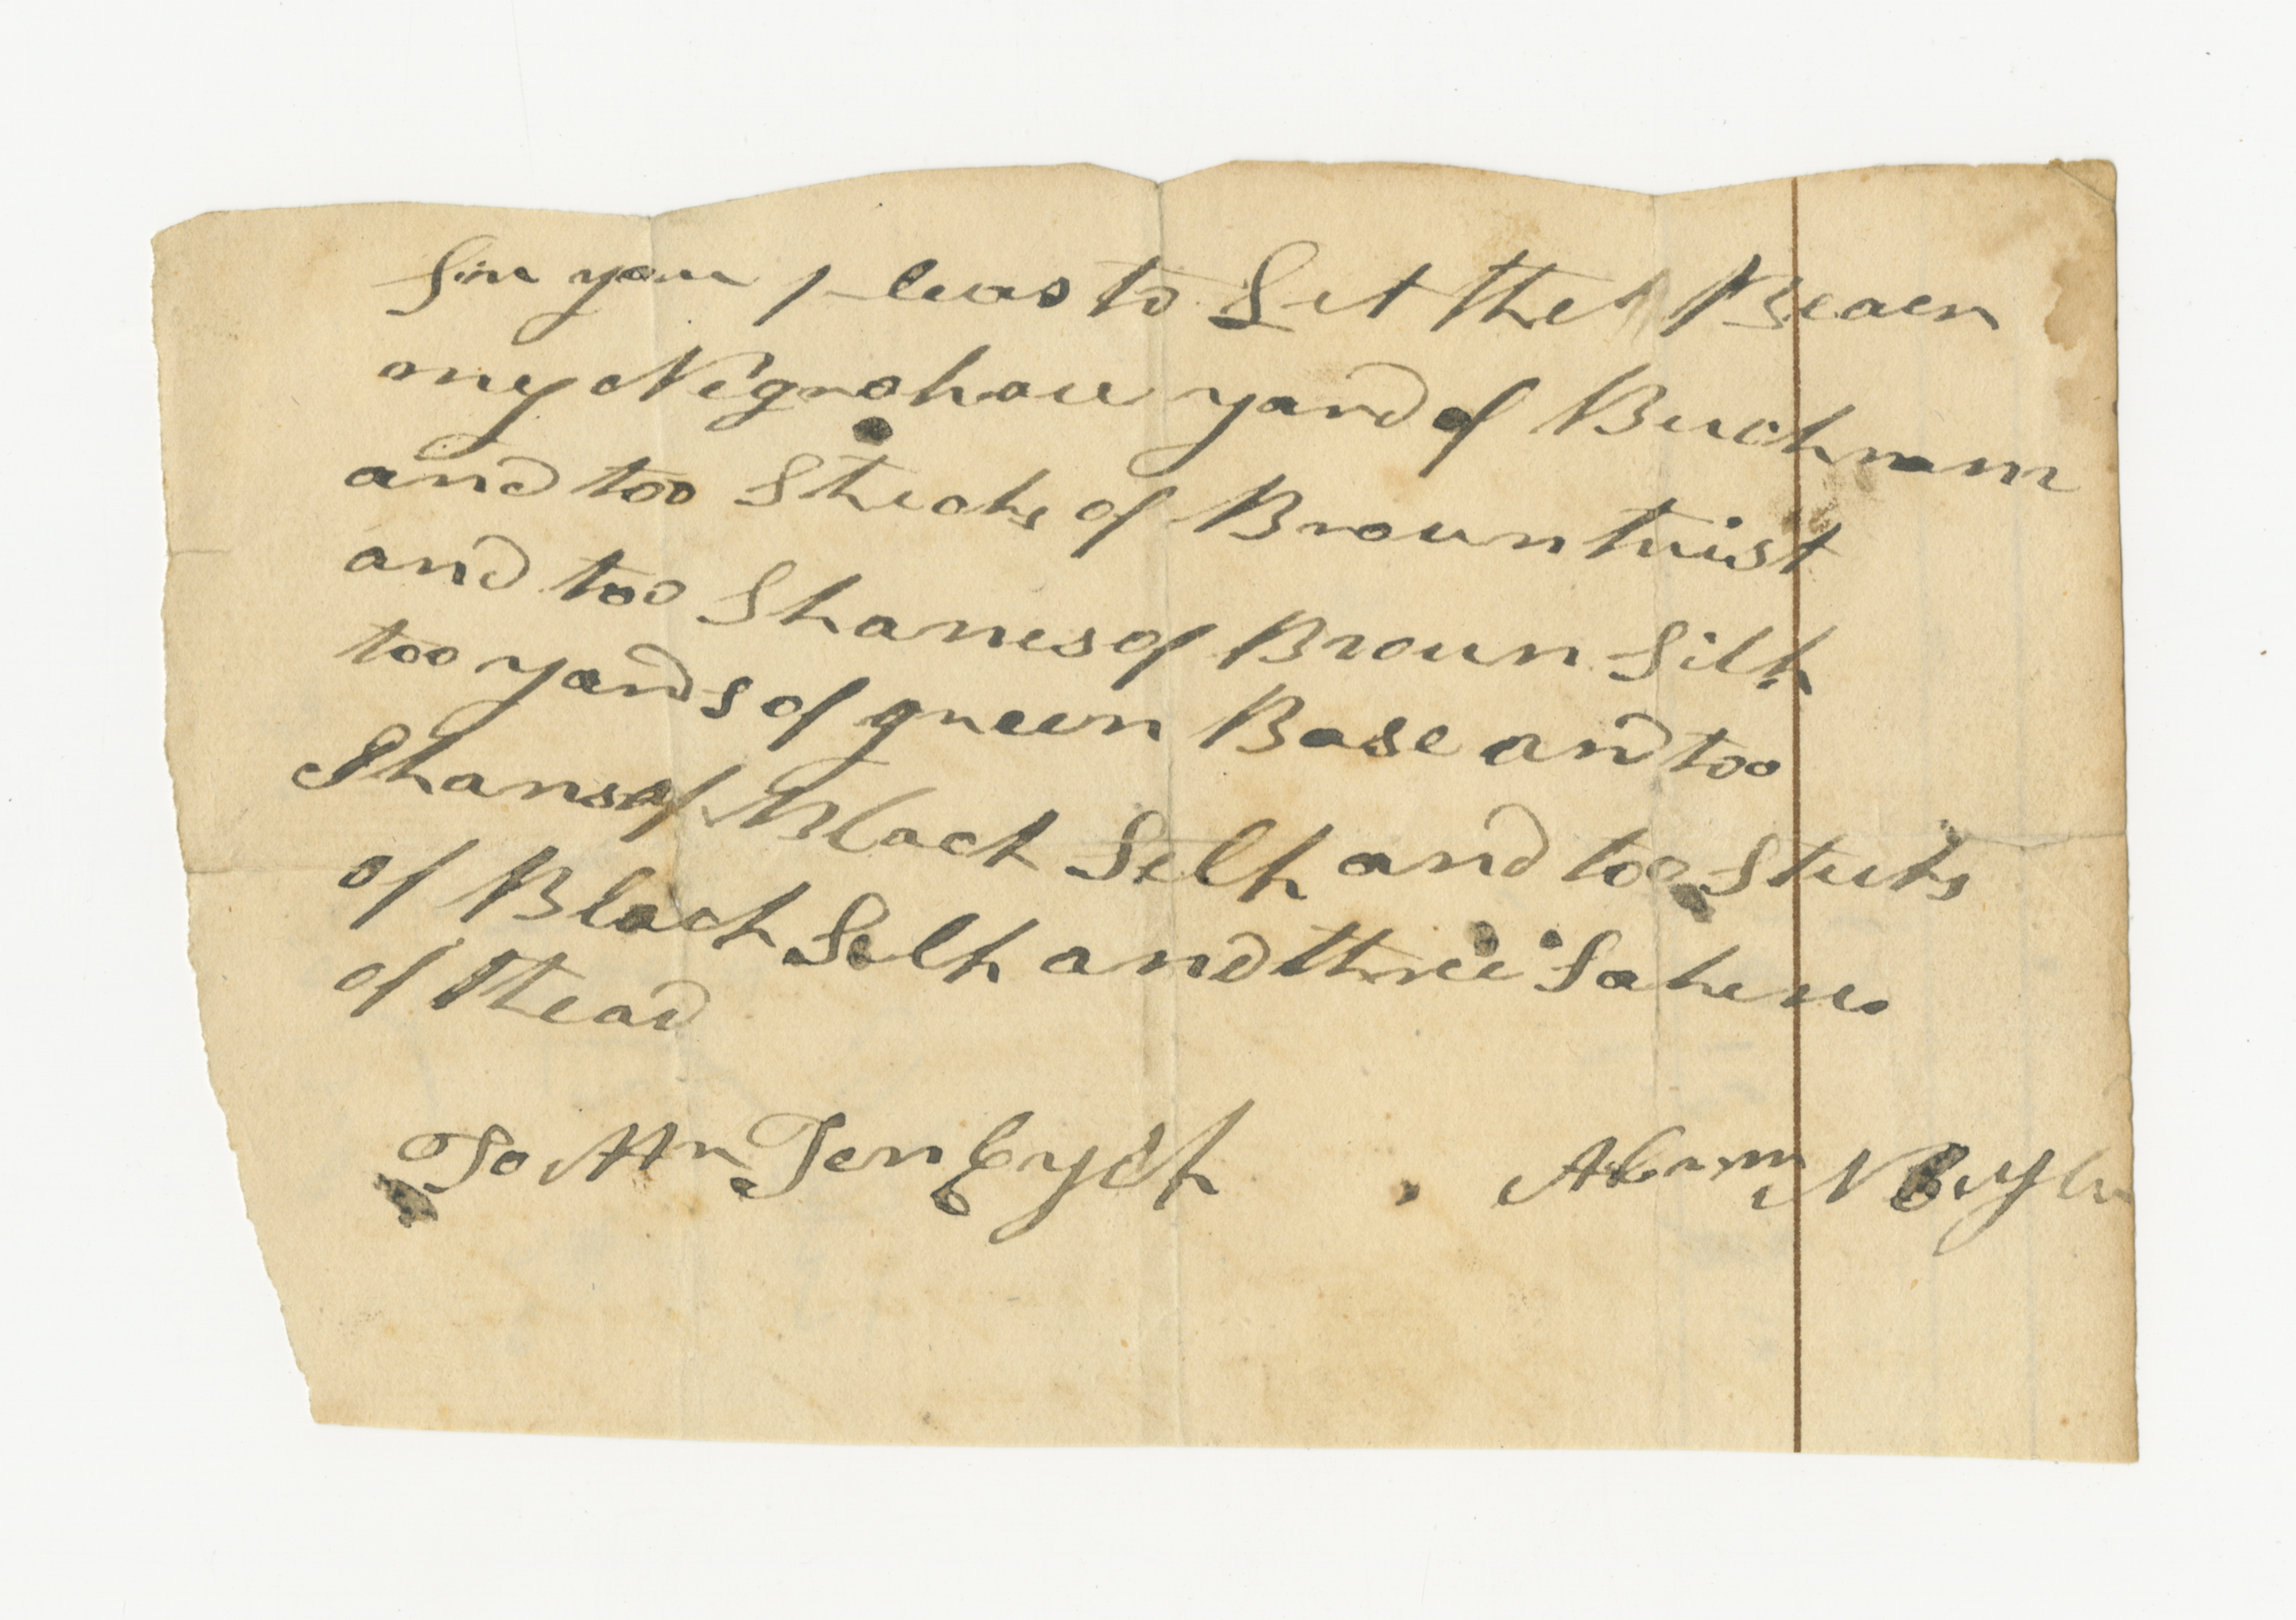 Sir you pleas to Let the Bearer
my Negro have yard of Buckram
and too Sticks of Broun tuist
and too Skanes of Broun Silk
too yards of green Base and too
Skans of Black Selk and too Stiks
of Black Selk and three Sakens
of thead
To Mr Ten Eyck Abrm